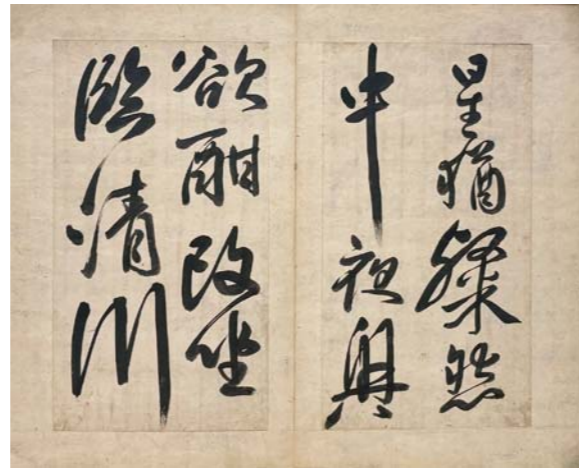 星猶粲然
中夜興
欲酣改坐
臨清川